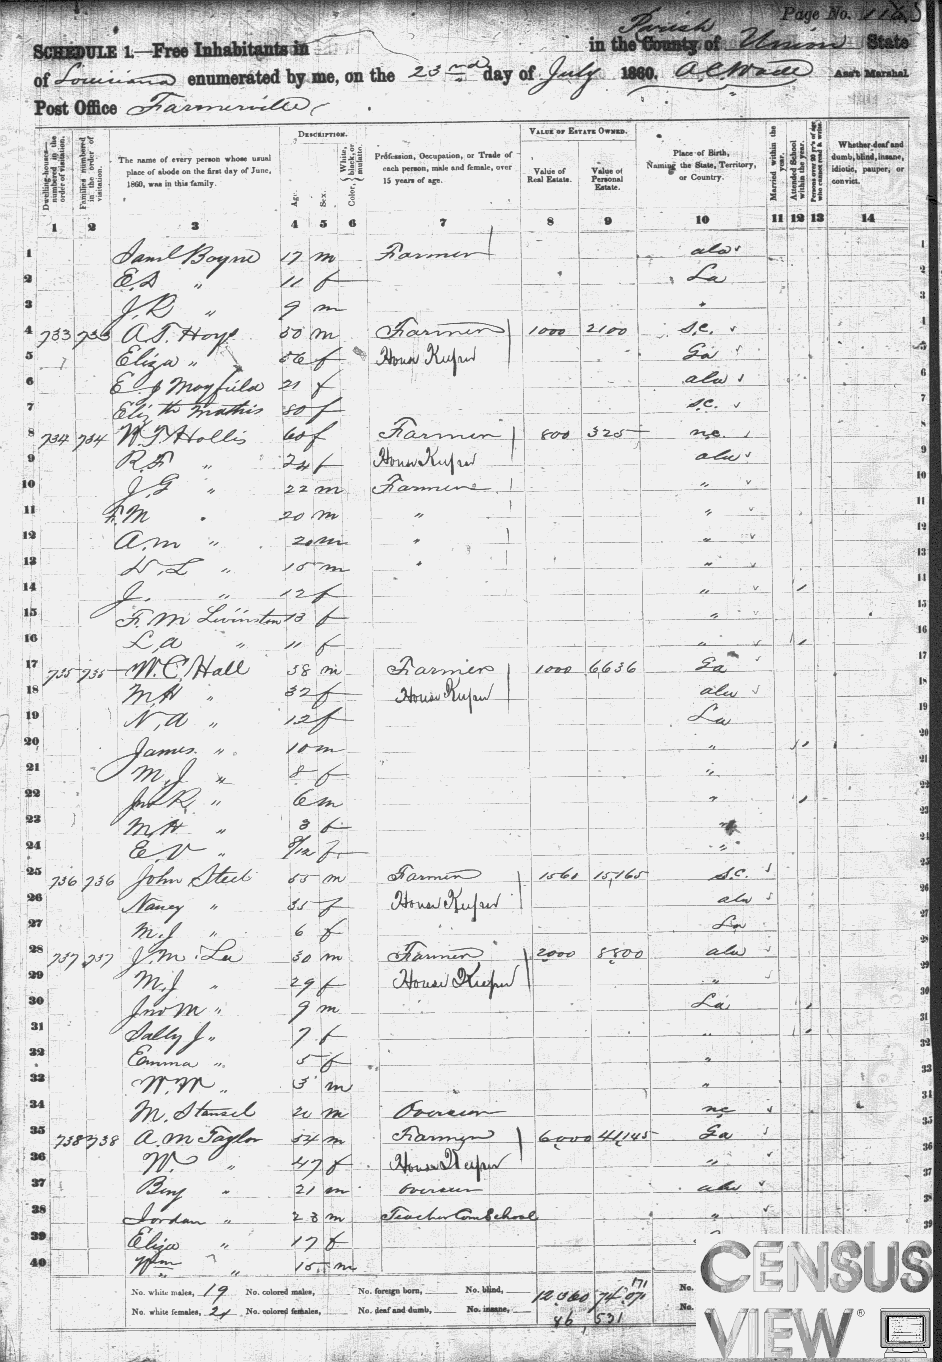 Page No. 116
SCHEDULE 1.—Free Inhabitants in in the County of Parish Union State
of Louisiana enumerated by me, on the 23rd day of July 1860. Ass't Marshal.
Post Office Farmerville
Dwelling-houses— numbered in the order of visitation.
Families numbered in the order of visitation.
The name of every person whose usual place of abode on the first day of June, 1860, was in this family.
DESCRIPTION.
Age.
Sex.
Color, White, black, or mulatto.
Profession, Occupation, or Trade of each person, male and female, over 15 years of age.
VALUE OF ESTATE OWNED.
Value of Real Estate.
Value of Personal Estate.
Place of Birth, Naming the State, Territory, or Country.
Married within the year.
Attended School within the year.
Persons over 20 y'rs of age who cannot read & write.
Whether deaf and dumb, blind, insane, idiotic, pauper, or convict.
1 2 3 4 5 6 7 8 9 10 11 12 13 14
1 Saml Boyne 17 m Farmer ala
2 E.D " 11 f La
3 J.R " 9 m "
4 733 733 A.T. Hoys 50 m Farmer 1000 2100 S.C.
5 Eliza " 56 f House Keeper Ga
6 E J Mayfield 21 f ala
7 Elizth Mathis 80 f S.C.
8 734 734 W.T. Hollis 60 f Farmer 800 325 n.c.
9 R.F " 24 f House Keeper ala
10 J.G " 22 m Farmer "
11 F.M " 20 m " "
12 A.m " 20 m " "
13 D.L " 15 m " "
14 J. " 12 f "
15 F.M Levinston 13 f "
16 L.A " 11 f "
17 735 735 W.C. Hall 38 m Farmer 1000 6636 Ga
18 M.H " 32 f House Keeper ala
19 N.A " 12 f La
20 James " 10 m "
21 M.J " 8 f "
22 Jno R. " 6 m "
23 M.H " 3 f "
24 E.V " 8/12 f "
25 736 736 John Steel 55 m Farmer 1561 15,165 S.C.
26 Nancy " 35 f House Keeper ala
27 M.J " 6 f La
28 737 737 J.M. Lee 30 m Farmer 2000 8800 ala
29 M.J " 29 f House Keeper "
30 Jno M " 9 m La
31 Sally J " 7 f "
32 Emma " 5 f "
33 W.W " 3 m "
34 M. Stansel 20 m Overseer nc
35 738 738 A.M Taylor 54 m Farmer 6000 41,145 Ga
36 W. " 47 f House Keeper "
37 Benj " 21 m Overseer ala
38 Jordan " 23 m Teacher Com School "
39 Eliza " 17 f
40 Wm " 15 m
No. white males, 19 No. colored males, No. foreign born, No. blind, No.
No. white females, 21 No. colored females, No. deaf and dumb, No. insane, No.
171
12,060 74,071
86,521
CENSUS
VIEW®